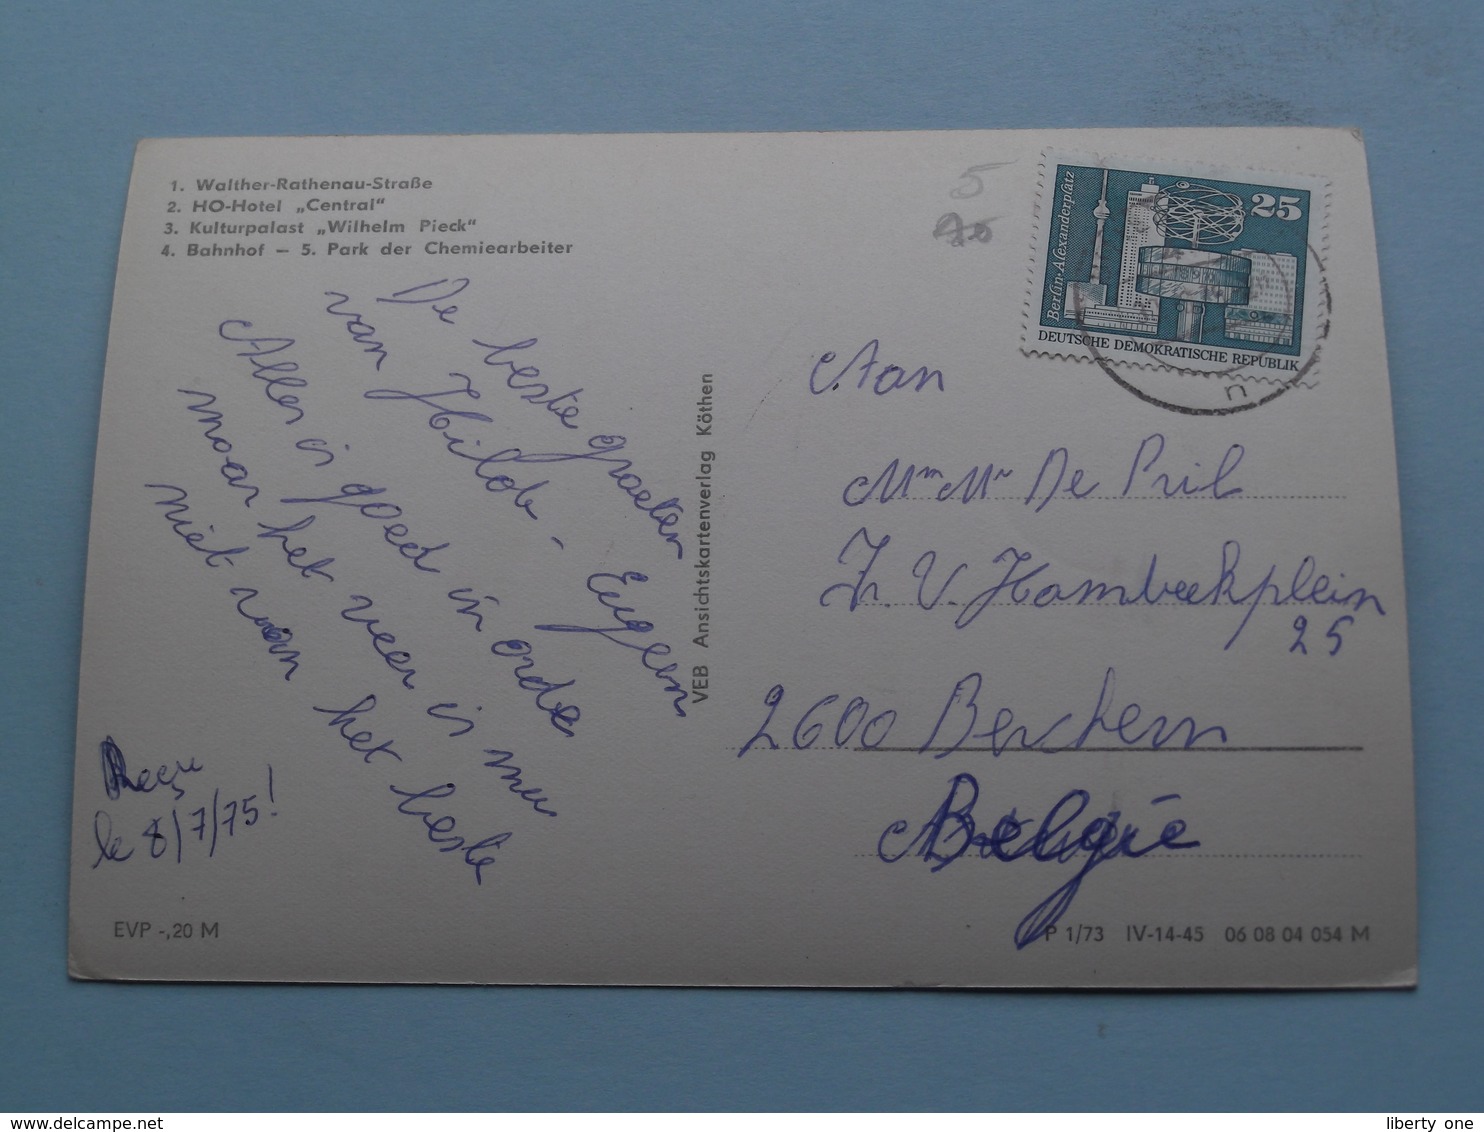 1. Walther-Rathenau-Straße
2. HO-Hotel „Central"
3. Kulturpalast „Wilhelm Pieck"
4. Bahnhof – 5. Park der Chemiearbeiter
De beste groeten
van Hilde - Eugeen
Alles is goed in orde
maar het weer is nu
niet van het beste
le 8/7/75!
EVP -,20 M
VEB Ansichtskartenverlag Köthen
5
Berlin-Alexanderplatz
25
DEUTSCHE DEMOKRATISCHE REPUBLIK
n
Aan
Mm Mr De Pril
V. Hombeekplein
25
2600 Berchem
België
P 1/73 IV-14-45 06 08 04 054 M
www.delcampe.net
liberty one